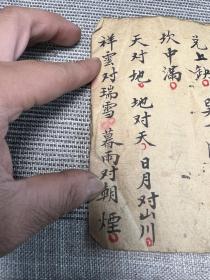 兑上缺
坎中满
天对地 地对天 日月对山川
祥雲对瑞雪 暮雨对朝煙